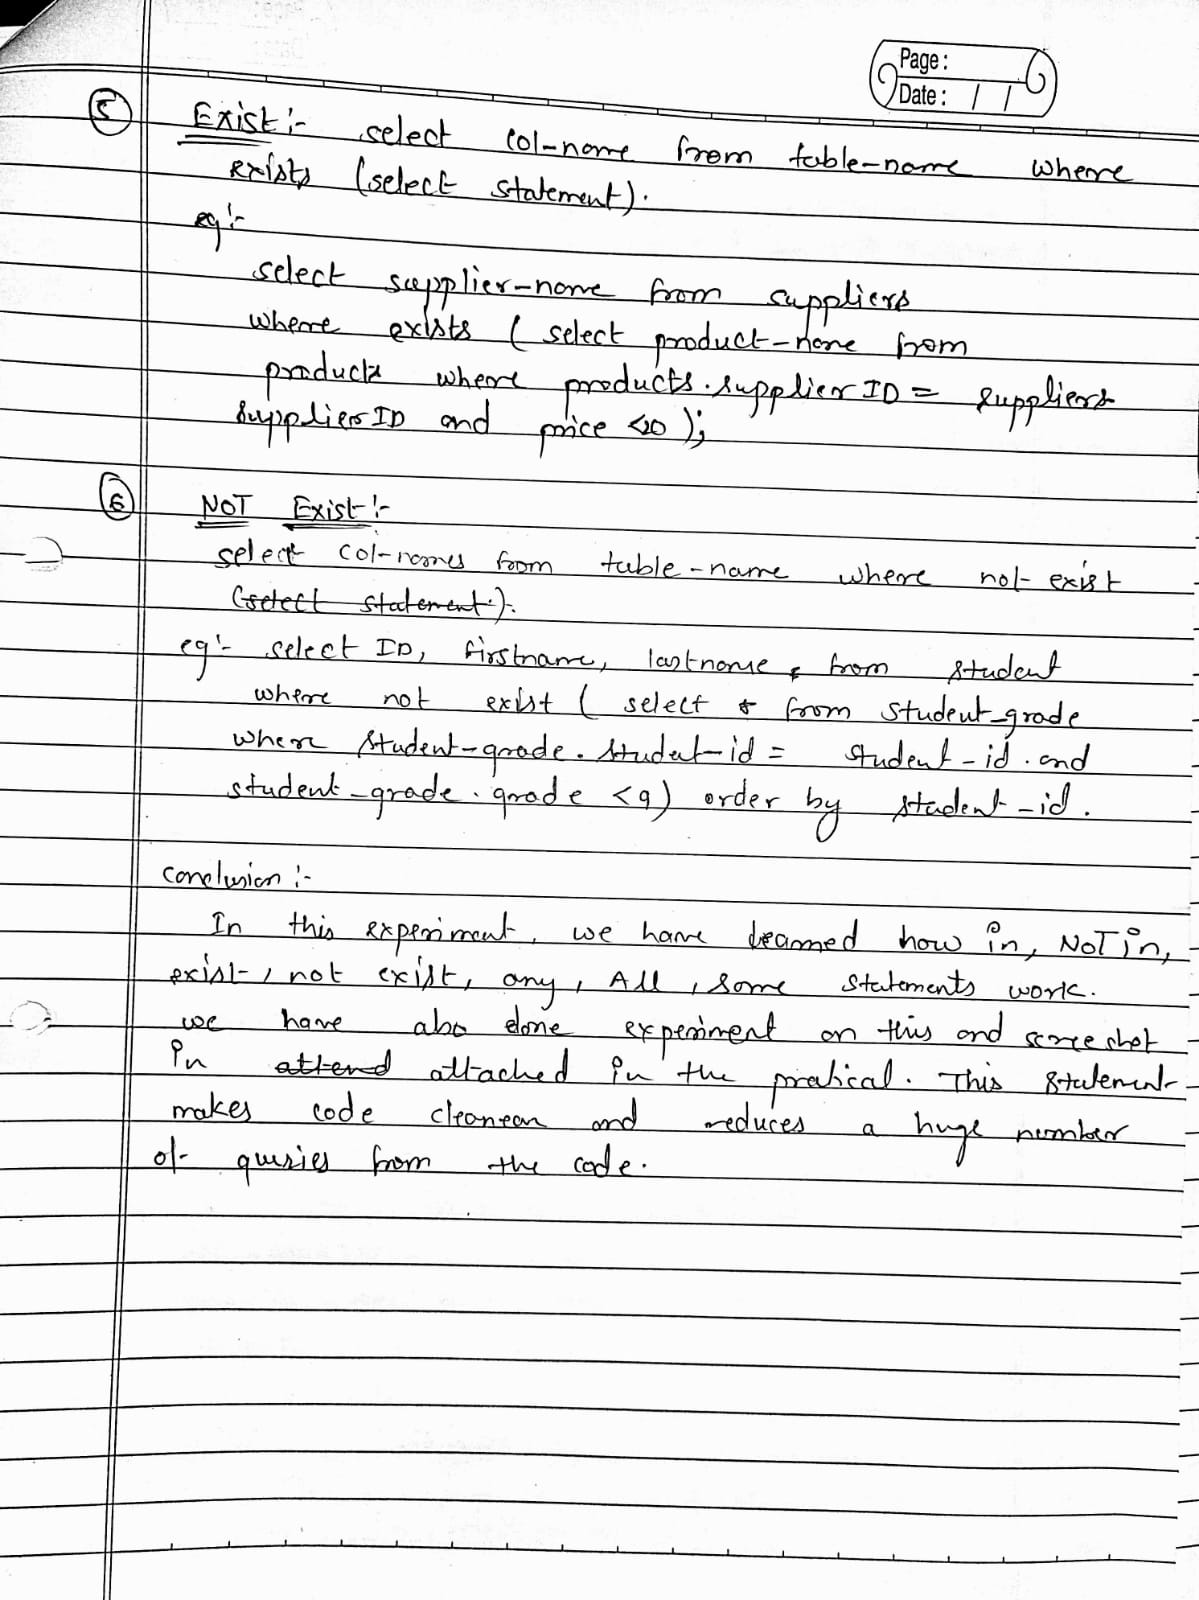 Page :
Date : / /
5 Exist :- select col-name from table-name where
exists (select statement).
eg :-
select supplier-name from suppliers
where exists ( select product-name from
products where products.supplierID = suppliers
supplierID and price <20 );
6 NOT Exist :-
select col-names from table-name where not exist
(select statement).
eg :- select ID, firstname, lastname, from student
where not exist ( select * from student-grade
where student-grade.student-id = student-id. and
student-grade.grade <9) order by student-id.
Conclusion :-
In this experiment, we have learned how in, NOT in,
exist, not exist, any, All, some statements work.
we have also done experiment on this and screeshot
in attend attached in the pratical. This statement
makes code cleanear and reduces a huge number
of quries from the code.